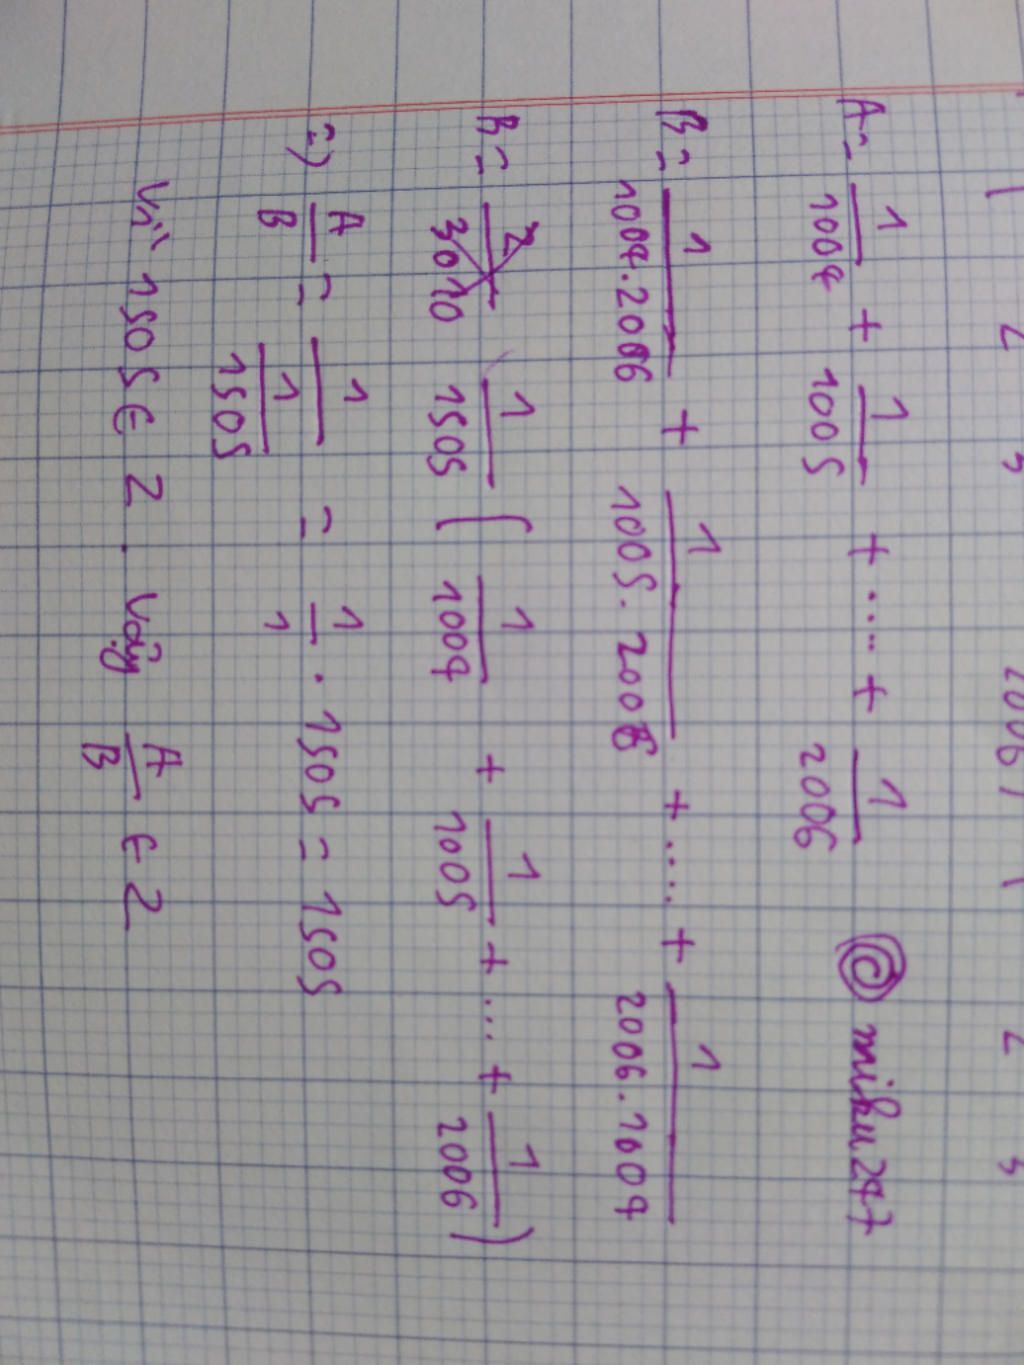 A = 1/1004 + 1/1005 + .... + 1/2006 @ miku247
B = 1/1004.2006 + 1/1005.2006 + .... + 1/2006.1004
B = 1/1505 ( 1/1004 + 1/1005 + ... + 1/2006 )
=) A/B = 1/(1/1505) = 1/1 . 1505 = 1505
Vì 1505 ∈ Z . Vậy A/B ∈ Z